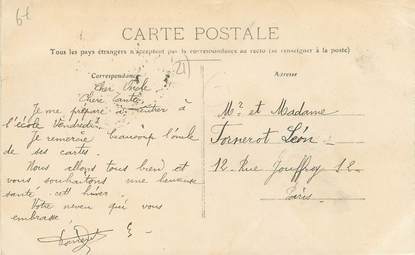 6f
CARTE POSTALE
Tous les pays étrangers n'acceptent pas la correspondance au recto (se renseigner à la poste)
Correspondance
21)
Cher Oncle
Chère Tante
Je me prépare à rentrer à
l'école Vendredi.
Je remercie beaucoup l'oncle
de ses cartes.
Nous allons tous bien et
vous souhaitons une heureuse
santé cett hiver.
Votre neveu qui vous
embrasse
Adresse
Mr et Madame
Fornerot Léon
12 Rue Jouffroy 12
Paris